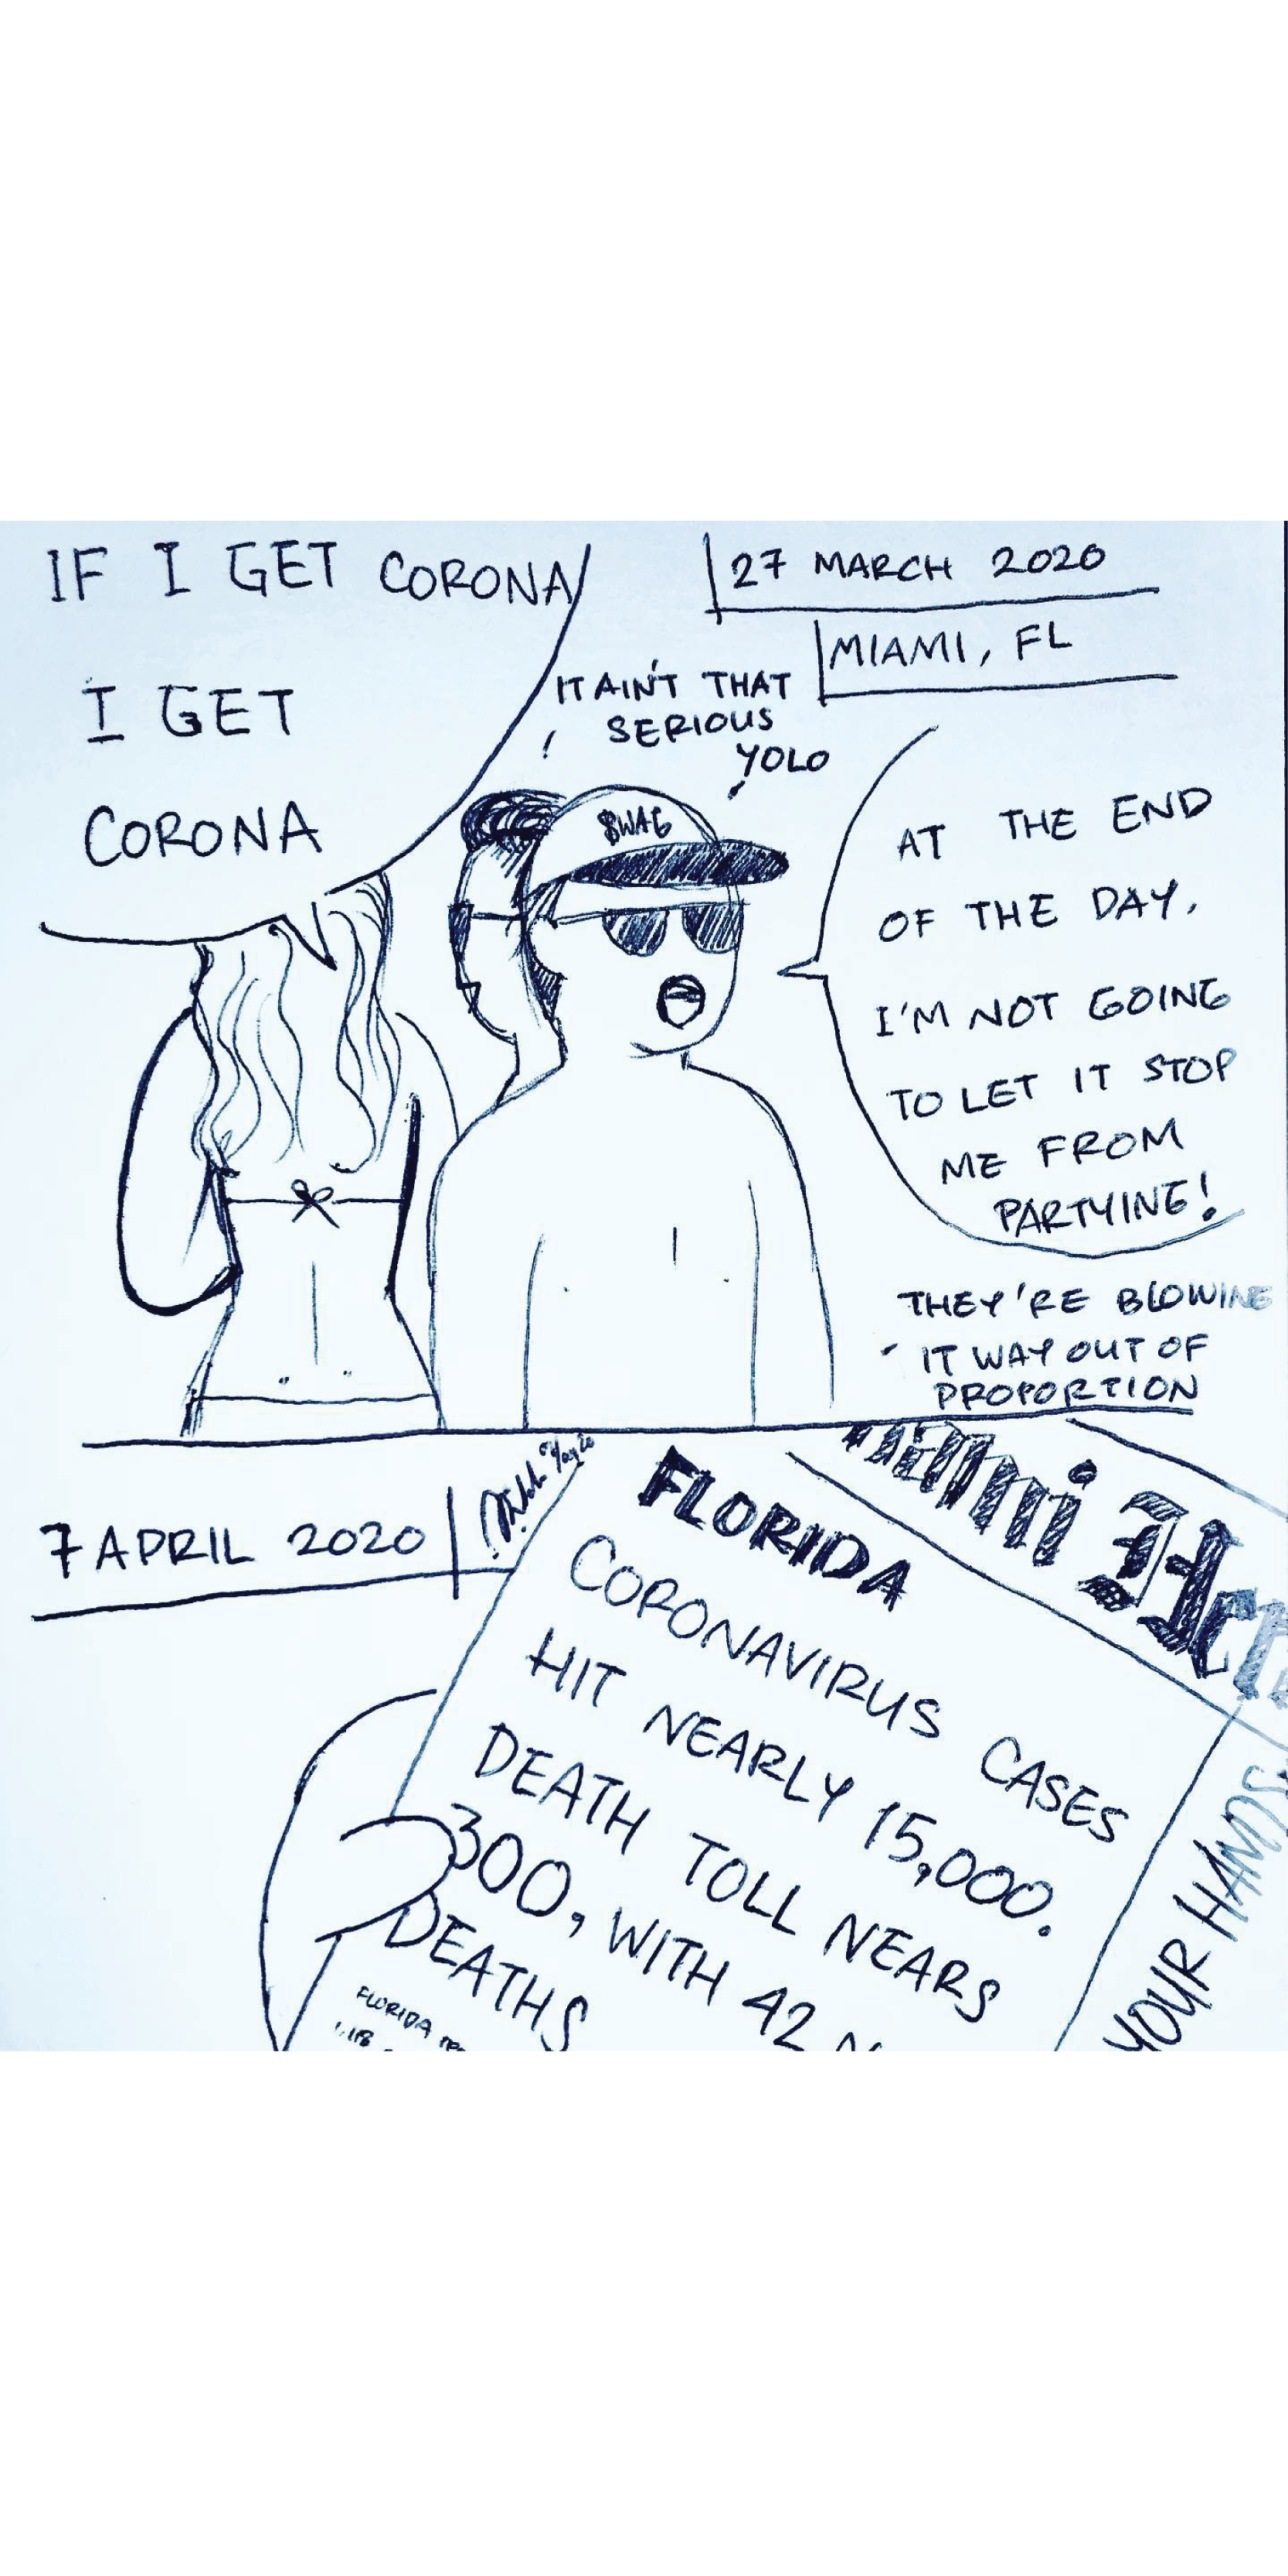 IF I GET CORONA
I GET
CORONA
27 MARCH 2020
MIAMI, FL
IT AIN'T THAT
SERIOUS
YOLO
$WAG
AT THE END
OF THE DAY,
I'M NOT GOING
TO LET IT STOP
ME FROM
PARTYING!
THEY'RE BLOWING
IT WAY OUT OF
PROPORTION
7 APRIL 2020
FLORIDA
CORONAVIRUS CASES
HIT NEARLY 15,000.
DEATH TOLL NEARS
300, WITH 42
DEATHS
FLORIDA
YOUR HANDS